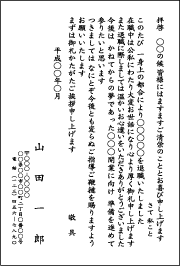 拝啓　〇〇の候　皆様にはますますご清栄のこととお喜び申し上げます
さて　私こと
このたび一身上の都合により〇〇〇〇を退職いたしました
在職中は公私にわたり大変お世話になり心より厚く御礼申し上げます
また退職に際しましては温かいお心遣いをいただきありがとうございました
今後は　かねてからの夢であった〇〇〇開業に向け　準備を進めて
参りたいと思います
つきましては　なにとぞ今後とも変らぬご指導ご鞭撻を賜りますよう
お願いいたします
まずは御礼かたがたご挨拶申し上げます
敬具
平成〇〇年〇月
山田一郎